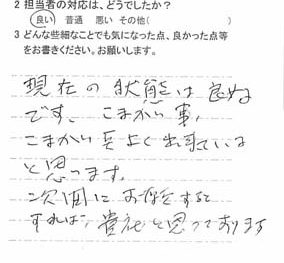 2 担当者の対応は、どうでしたか?
良い 普通 悪い その他( )
3 どんな些細なことでも気になった点、良かった点等
をお書きください。お願いします。
現在の状態は良好
です、こまかい事、
こまかい よく出来ている
と思います。
次回に お をすると
すれば、貴社と思っております